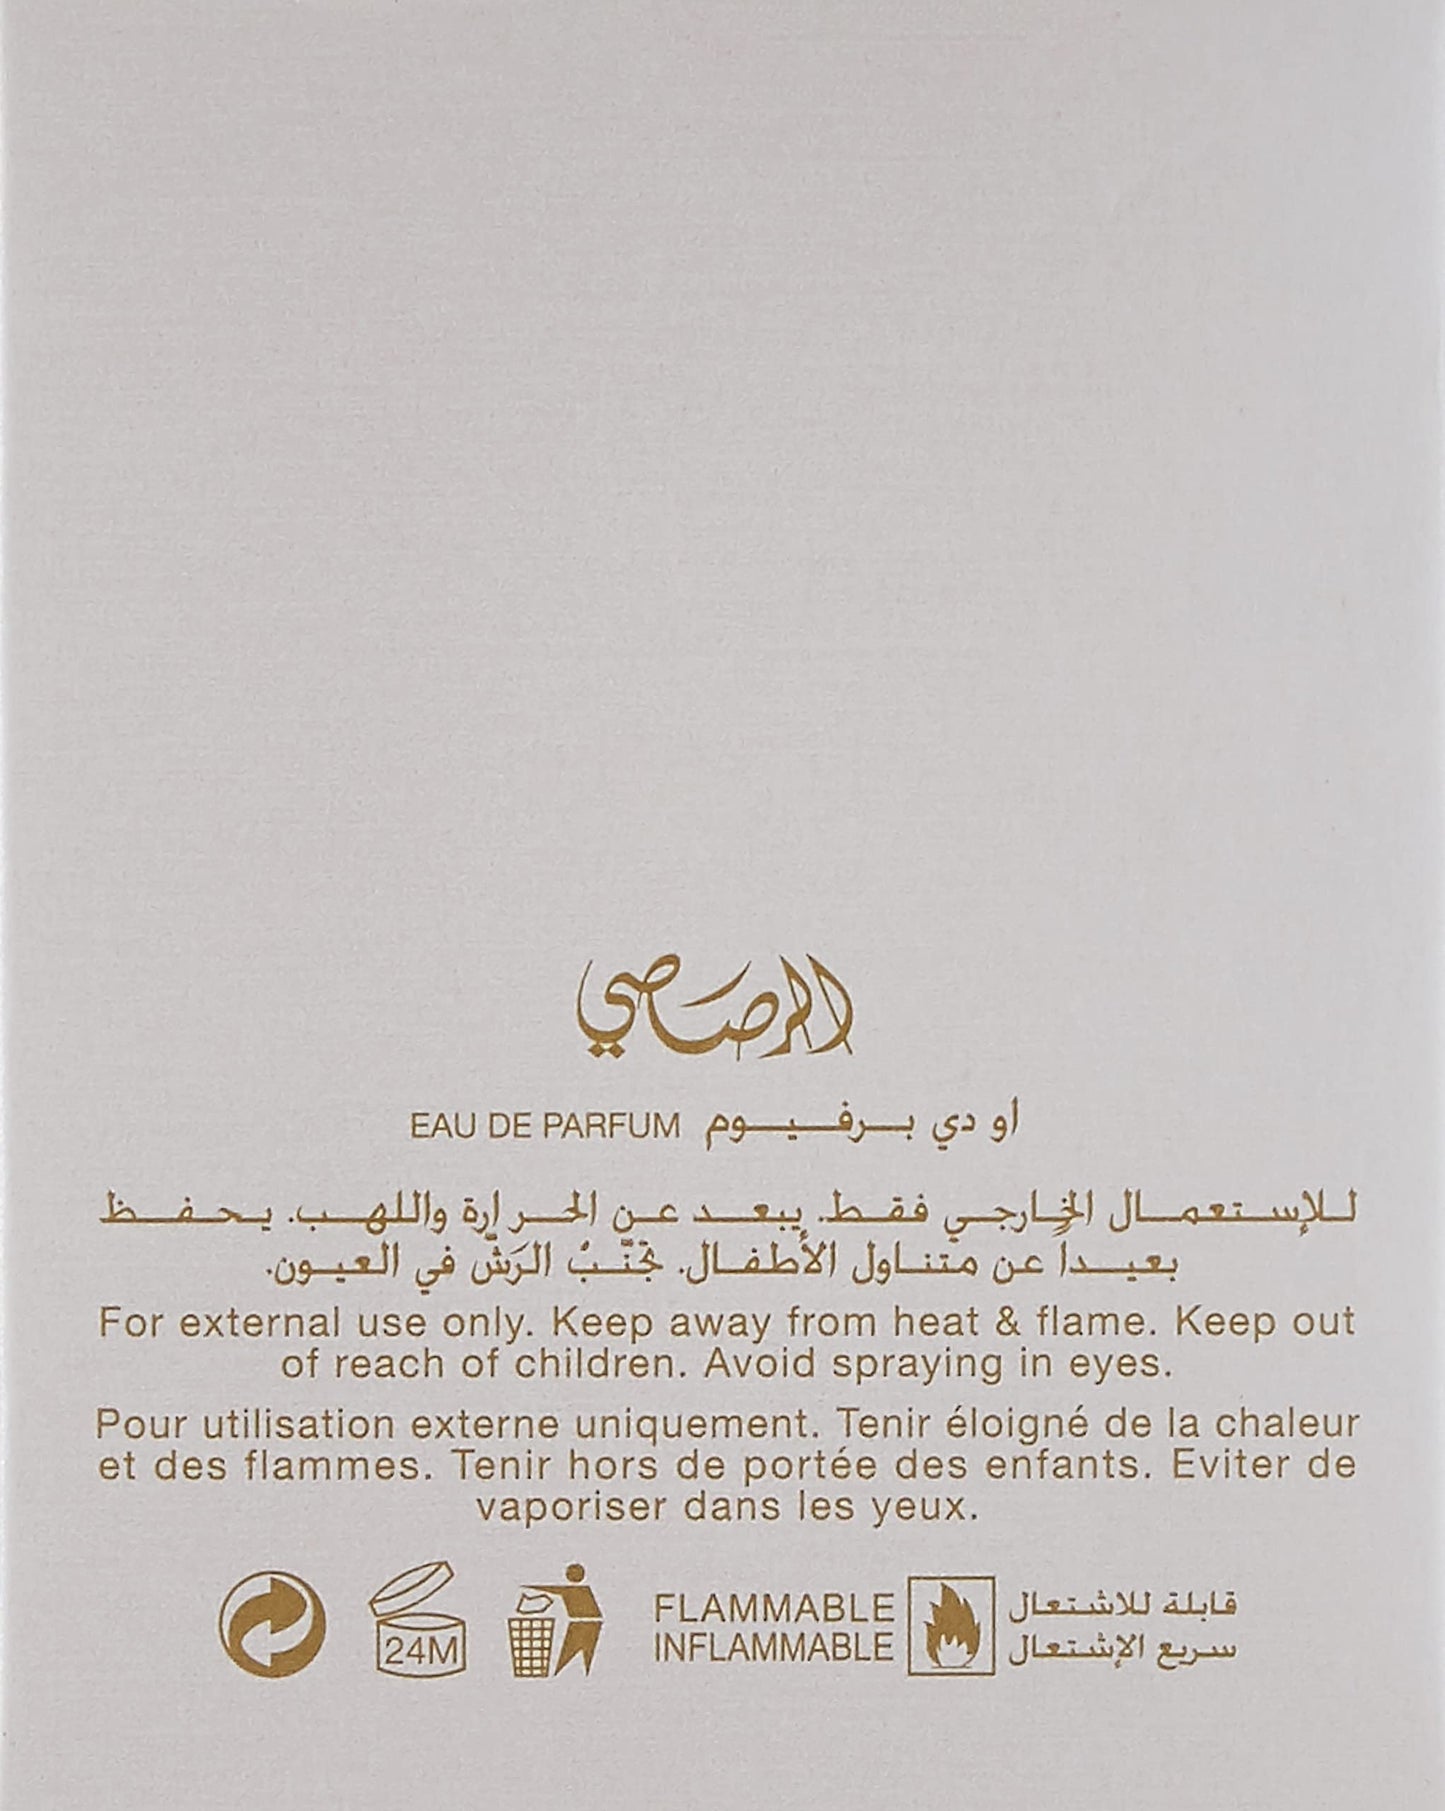 الرصاصي
EAU DE PARFUM او دي برفيوم
للإستعمال الخارجي فقط. يبعد عن الحرارة واللهب. يحفظ
بعيداً عن متناول الأطفال. تجنَّبُ الرَشّ في العيون.
For external use only. Keep away from heat & flame. Keep out
of reach of children. Avoid spraying in eyes.
Pour utilisation externe uniquement. Tenir éloigné de la chaleur
et des flammes. Tenir hors de portée des enfants. Eviter de
vaporiser dans les yeux.
24M
FLAMMABLE قابلة للاشتعال
INFLAMMABLE سريع الإشتعال